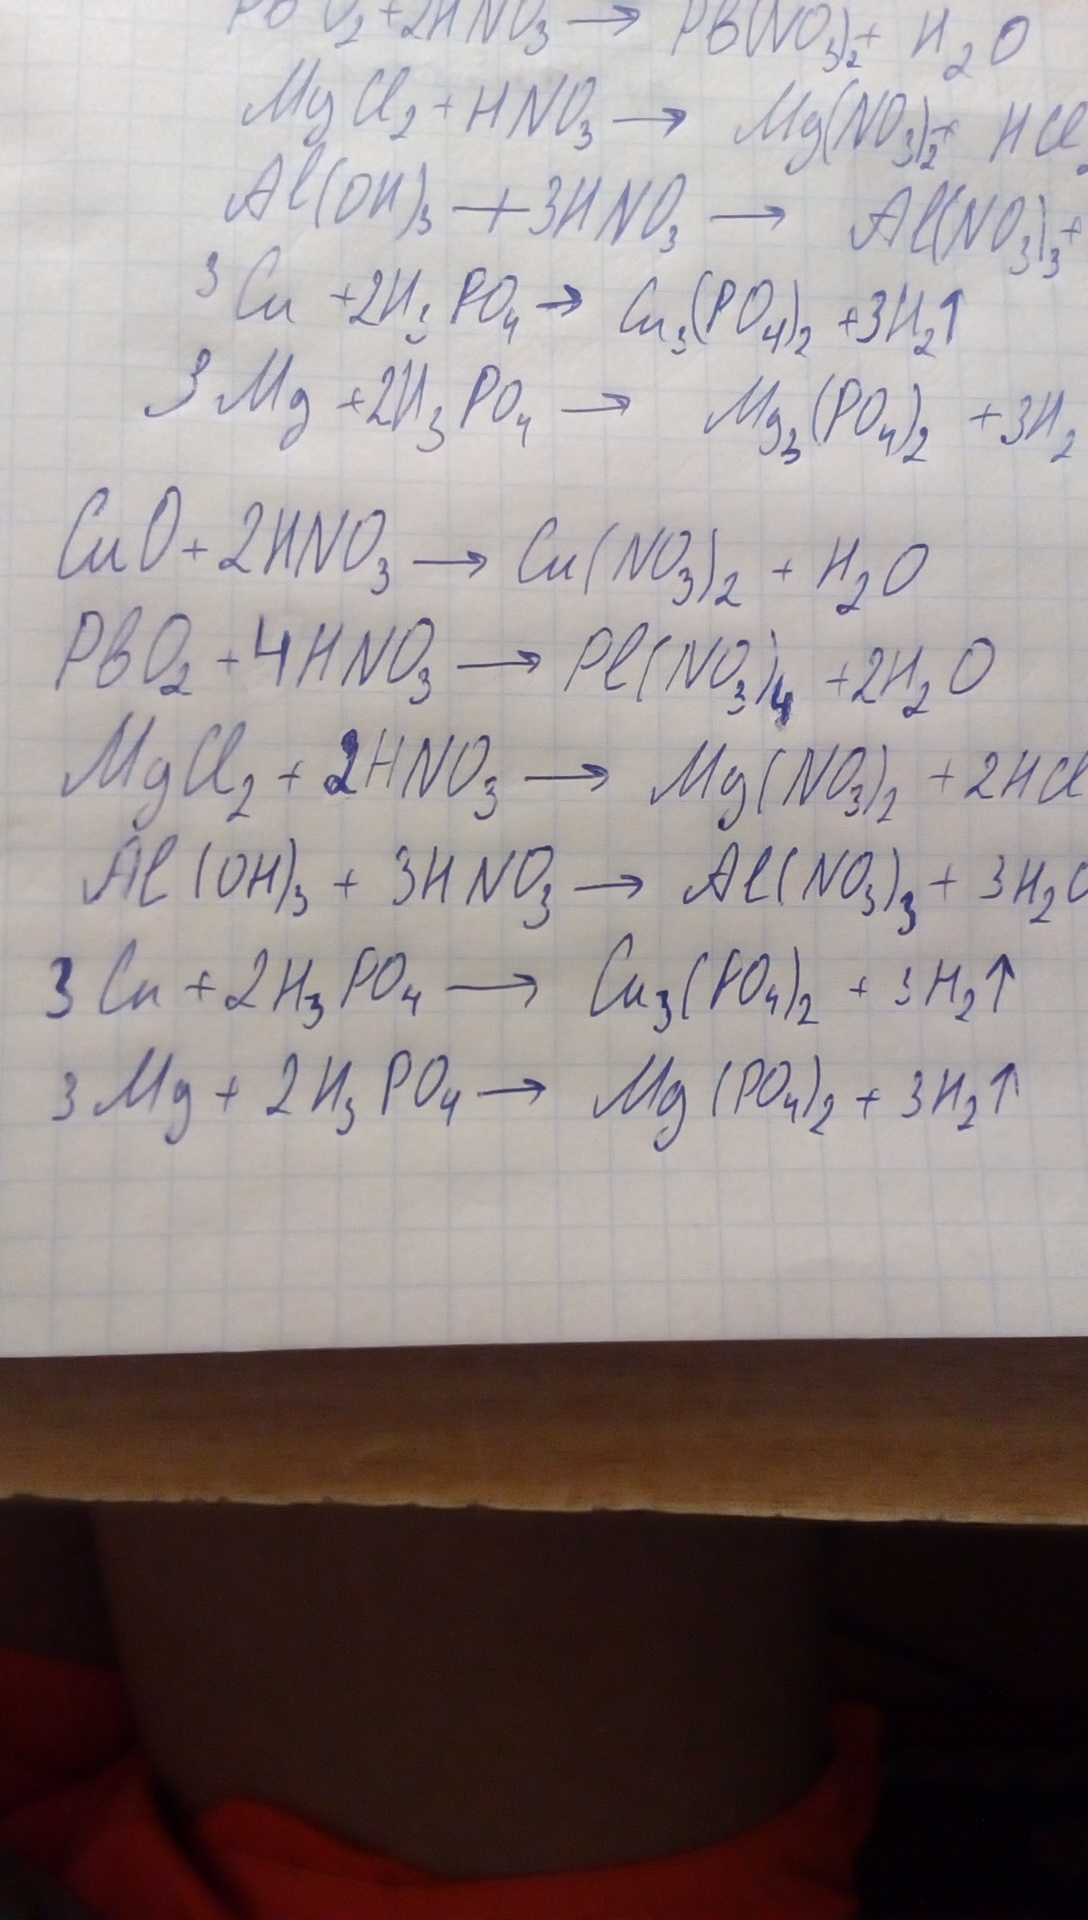 PbO₂ + 2HNO₃ → Pb(NO₃)₂ + H₂O
MgCl₂ + HNO₃ → Mg(NO₃)₂ + HCl₂
Al(OH)₃ + 3HNO₃ → Al(NO₃)₃ +
3Cu + 2H₃PO₄ → Cu₃(PO₄)₂ + 3H₂↑
3Mg + 2H₃PO₄ → Mg₃(PO₄)₂ + 3H₂
CuO + 2HNO₃ → Cu(NO₃)₂ + H₂O
PbO₂ + 4HNO₃ → Pl(NO₃)₄ + 2H₂O
MgCl₂ + 2HNO₃ → Mg(NO₃)₂ + 2HCl
Al(OH)₃ + 3HNO₃ → Al(NO₃)₃ + 3H₂O
3Cu + 2H₃PO₄ → Cu₃(PO₄)₂ + 3H₂↑
3Mg + 2H₃PO₄ → Mg(PO₄)₂ + 3H₂↑